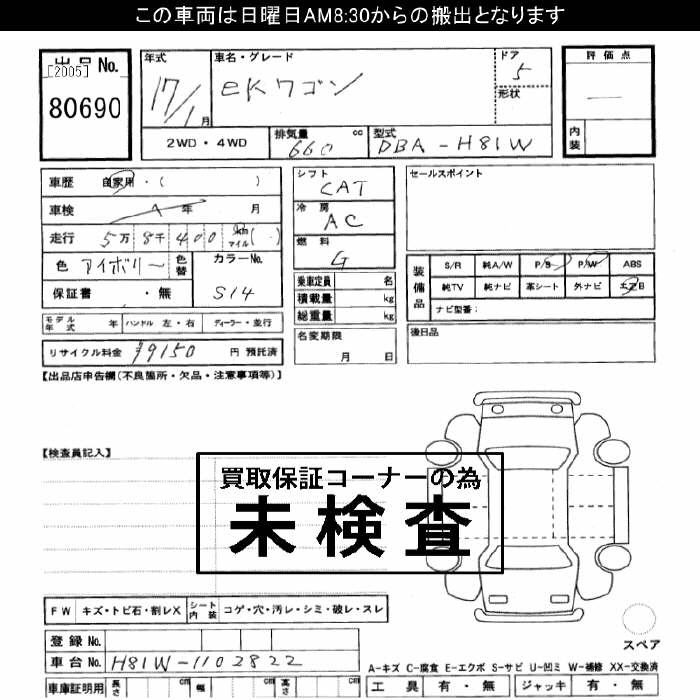 この車両は日曜日AM8:30からの搬出となります
出品No.
[2005]
80690
年式
17/1月
車名・グレード
eKワゴン
ドア
5
形状
2WD・4WD
排気量 cc
660
型式
DBA-H81W
評価点
内装
車歴 自家用・( )
車検 年 月
走行 5万8千400 km マイル( )
色 アイボリー 色替
カラーNo.
S14
保証書 ・無
モデル年式 年 ハンドル 左・右 ディーラー・並行
リサイクル料金 ¥9150 円 預託済
シフト
CAT
冷房
AC
燃料
G
乗車定員 名
積載量 kg
総重量 kg
名変期限
月 日
セールスポイント
装備品
S/R 純A/W P/S P/W ABS
純TV 純ナビ 革シート 外ナビ エアB
ナビ型番:
後日品
【出品店申告欄(不良箇所・欠品・注意事項等)】
【検査員記入】
買取保証コーナーの為
未検査
FW キズ・トビ石・割レX シート内装 コゲ・穴・汚レ・シミ・破レ・スレ
登録No.
車台No. H81W-1102822
車庫証明用 長さ cm 幅 cm 高さ cm
スペア
A-キズ C-腐食 E-エクボ S-サビ U-凹ミ W-補修 XX-交換済
工具 有・無 ジャッキ 有・無